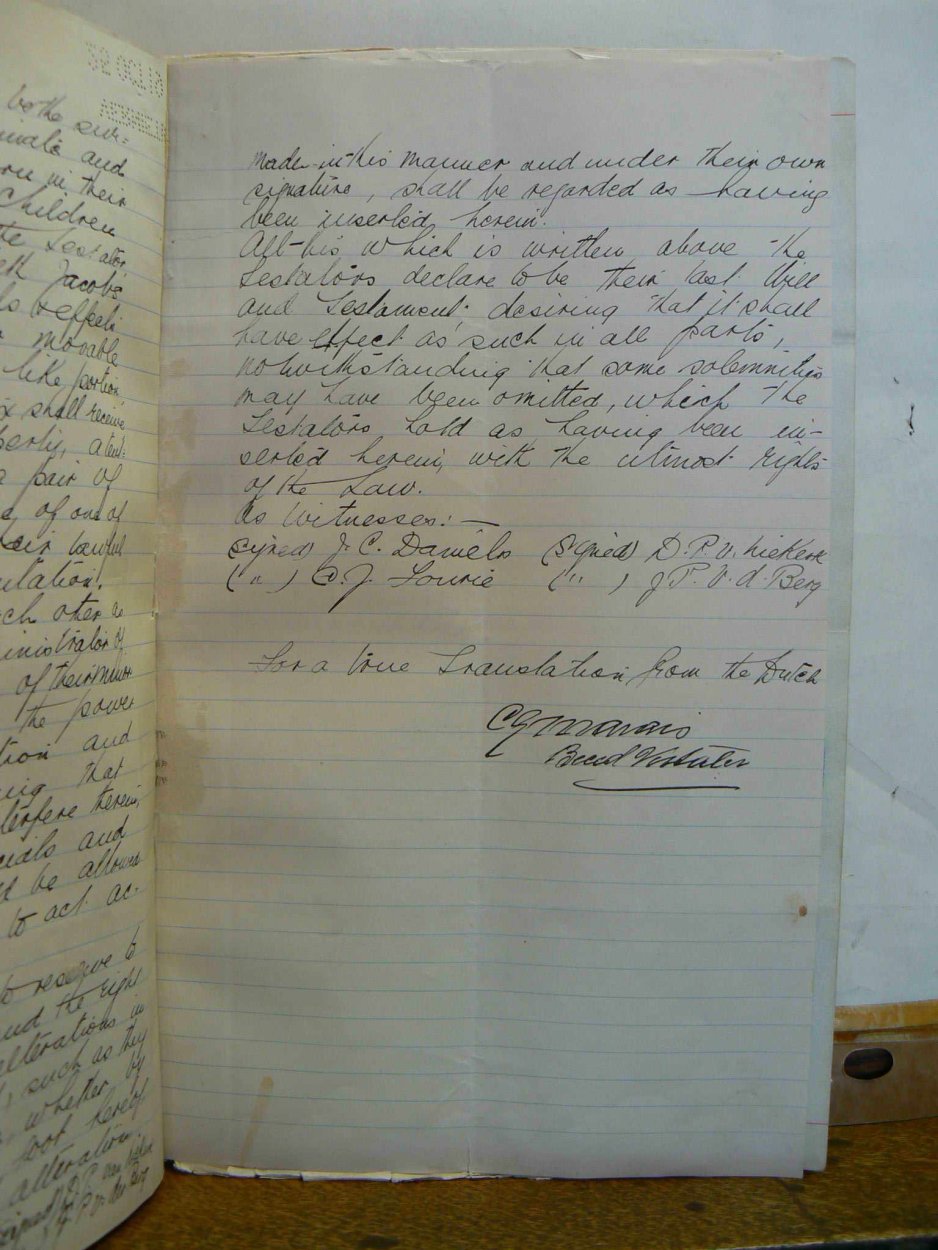 32 OCT 10
be the sur-
and
in their
Children
the Testator
Jacobs
effects
movable
like portion,
shall receive
a pair of
of one of
their lawful
each other as
administrator of
of their minor
the power
and
that
interfere therein,
and
be allowed
to act ac-
to reserve to
and the right
alterations in
such as they
whether by
foot hereof
alteration
signed D. P. van
J. P. v. der Berg
made in this manner and under their own
signature, shall be regarded as having
been inserted herein.
All this which is written above the
Testators declare to be their last Will
and Testament desiring that it shall
have effect as such in all parts,
notwithstanding that some solemnities
may have been omitted, which the
Testators hold as having been in-
serted herein, with the utmost rights
of the Law.
As Witnesses: —
(signed) J. C. Daniels (signed) D. P. v. Niekerk
( " ) D. J. Lourie ( " ) J. P. V. d. Berg
For a true Translation from the Dutch
C G Marais